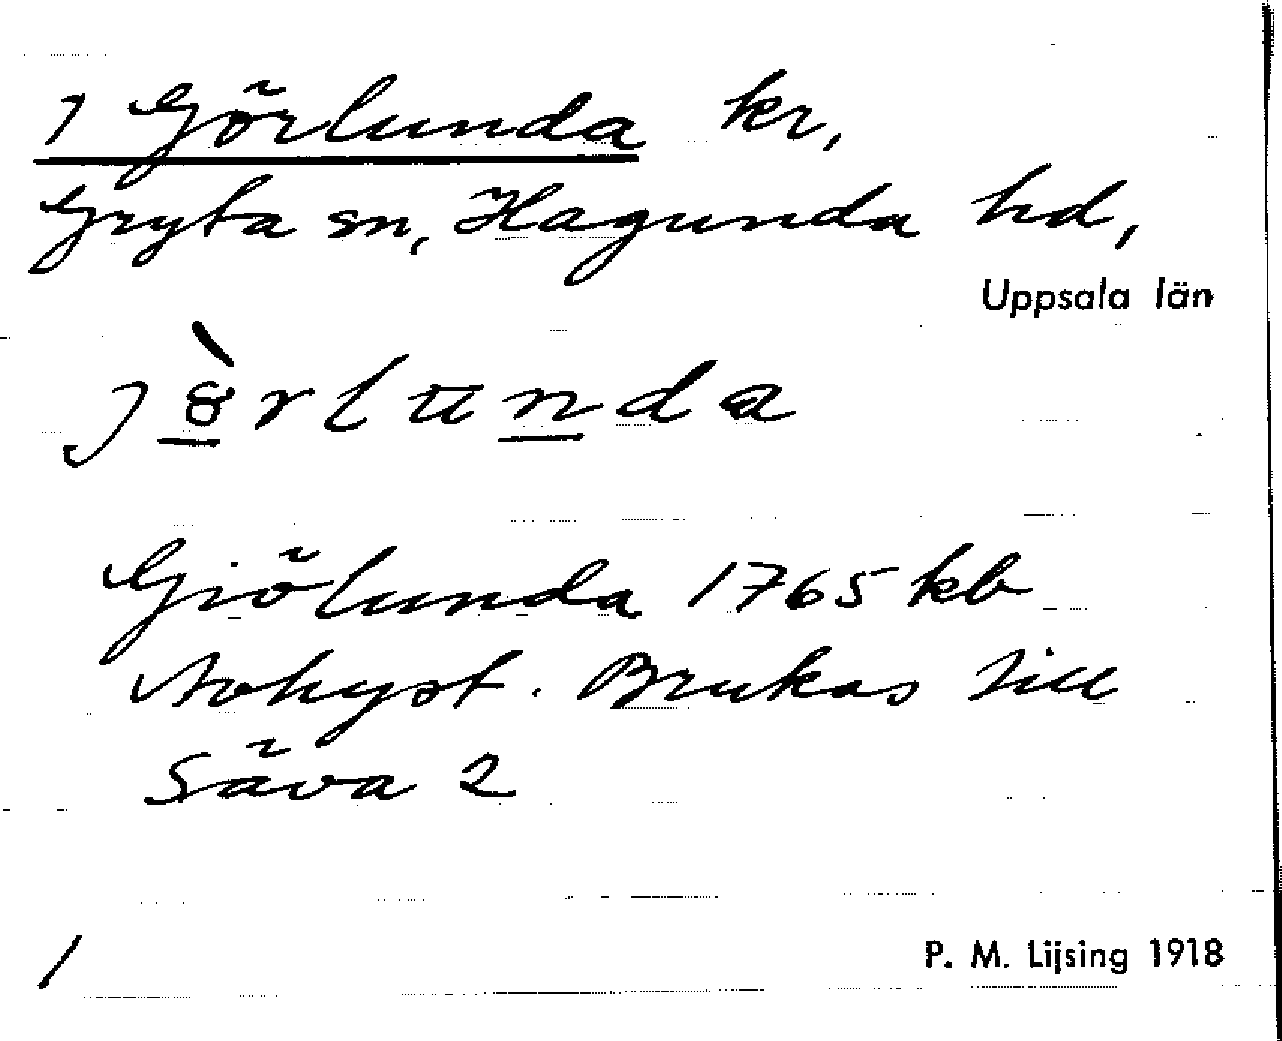 1 Görlunda kr,
Gryta sn, Hagunda hd,
Uppsala län
jörlunda
Giölunda 1765 kb
Avhyst. Brukas till
Säva 2
1
P. M. Lijsing 1918